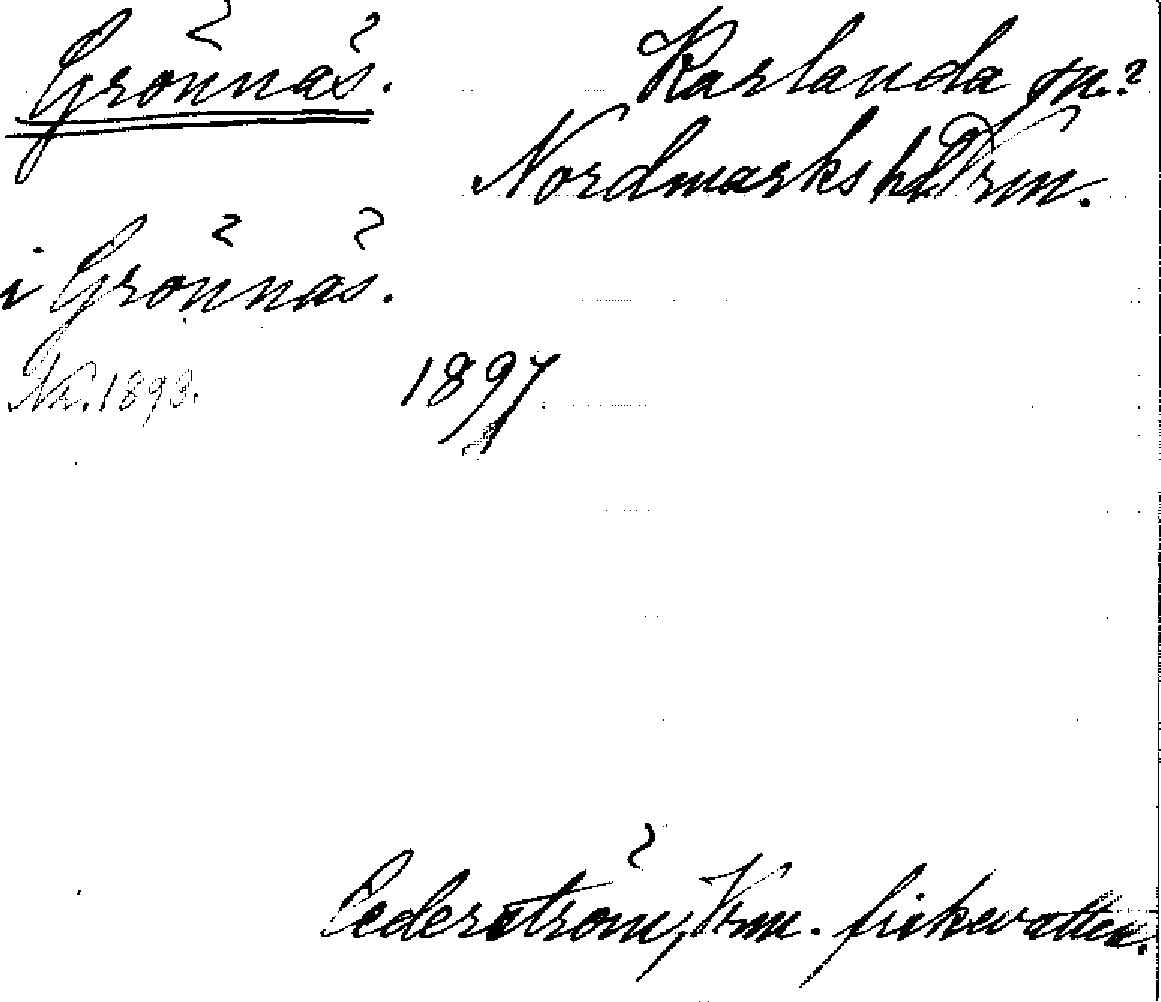 Grönnäs. Karlanda sn.?
Nordmarks hd Vrm.
i Grönnäs.
1897
Cederström, Vrm. fiskevatten.